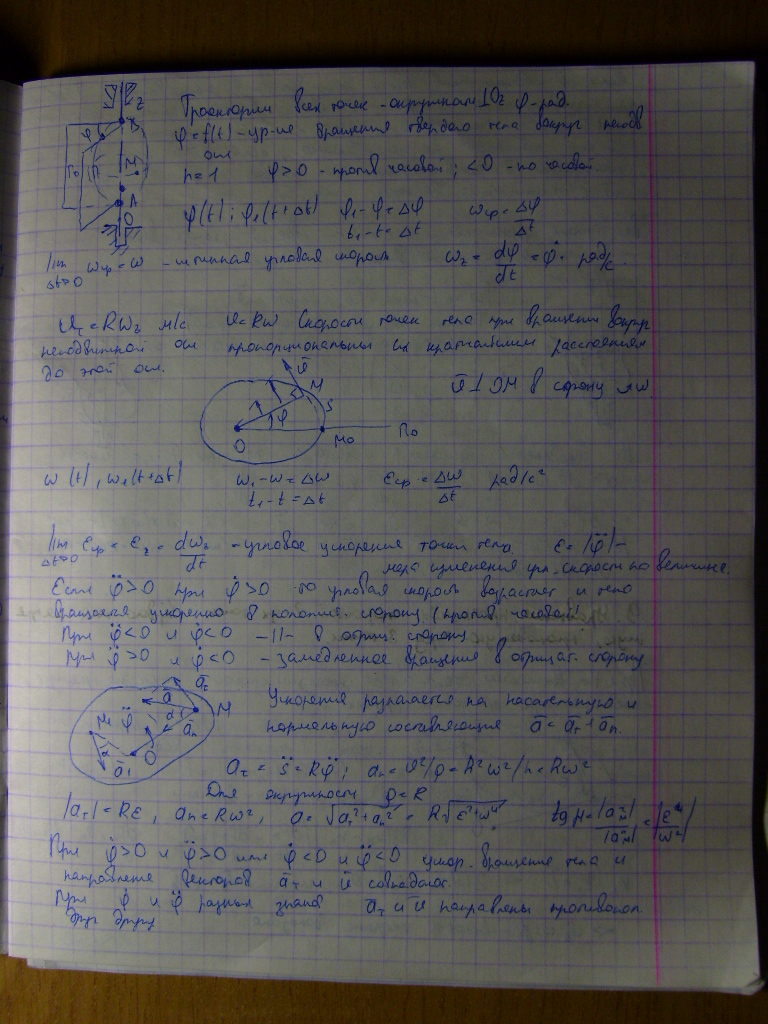 z
Траектории всех точек - окружности ⊥Oz φ-рад.
φ = f(t) - ур-ие вращения твердого тела вокруг неподв
оси
n = 1 φ>0 - против часовой; <0 - по часовой
B
φ
П₀
П
M
A
O
φ(t); φ₁(t+Δt) φ₁-φ=Δφ ωср = Δφ/Δt
t₁-t=Δt
lim ωср = ω - истинная угловая скорость ωz = dφ/dt = φ̇ рад/с.
Δt→0
υτ = Rωz м/с υ=Rω Скорости точек тела при вращении вокруг
неподвижной оси пропорциональны их кратчайшим расстояниям
до этой оси.
ῡ
M
ῡ⊥OM в сторону ω.
S
φ
O
M₀
П₀
ω(t), ω₁(t+Δt) ω₁-ω=Δω εср = Δω/Δt рад/с²
t₁-t=Δt
lim εср = εz = dωz/dt - угловое ускорение точки тела. ε = |φ̈| -
Δt→0
мера изменения угл. скорости по величине.
Если φ̈>0 при φ̇>0 - то угловая скорость возрастает и тело
вращается ускорено в полож. сторону (против часовой)
При φ̈<0 и φ̇<0 -||- в отриц. сторону
При φ̈>0 и φ̇<0 - замедленное вращение в отрицат. сторону
āτ
ā
M
α
ān
M₁
φ̈
O
α
ā₁
Ускорения разлагается на касательную и
нормальную составляющие ā = āτ + ān.
aτ = s̈ = Rφ̈; an = υ²/ρ = R²ω²/R = Rω²
Для окружности ρ=R
|aτ| = Rε, an = Rω², a = √(aτ²+an²) = R√(ε²+ω⁴) tg μ = |aτм|/|aнм| = |ε/ω²|
При φ̇>0 и φ̈>0 или φ̇<0 и φ̈<0 ускор. вращение тела и
направление векторов āτ и ῡ совпадают.
При φ̇ и φ̈ разных знаков āτ и ῡ направлены противопол
друг другу